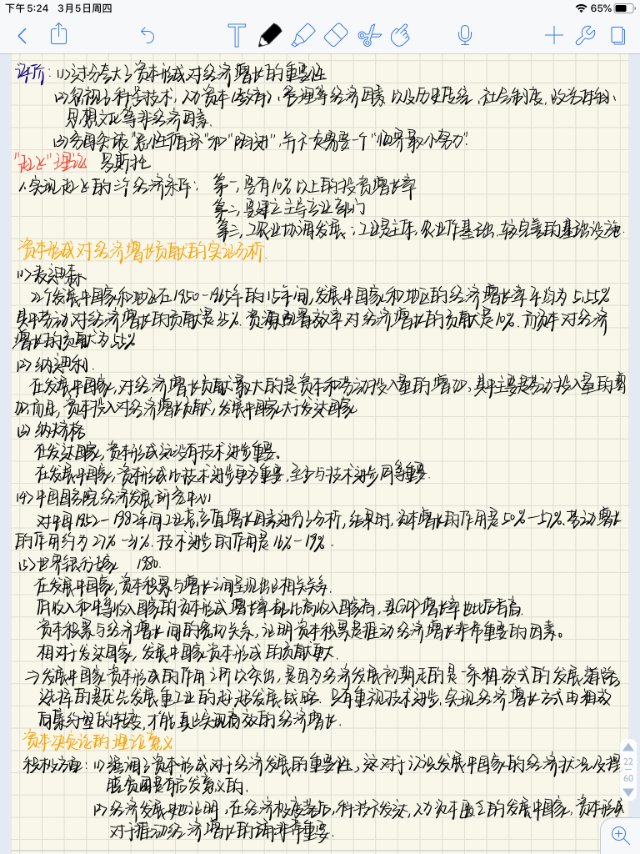 下午5:24 3月5日周四
65%
评价：(1)过分夸大了资本形成对经济增长的重要性
(2)忽视了科学技术，人力资本(教育)，管理等经济因素以及历史传统，社会制度，政治体制，
思想文化等非经济因素.
(3)各国实该"恶性循环"和"陷阱"，并不大需要一个"临界最小努力".
"起飞"理论 罗斯托
1.实现起飞的三个经济条件： 第一，要有10%以上的投资增长率
第二，要建立主导产业部门
第三，工农业协调发展：工业是主体，农业作基础，较完善的基础设施.
资本形成对经济增长贡献的实证分析.
(1)
22个发展中国家和地区在1950-1965年的15年间，发展中国家和地区的经济增长率平均为5.55%
其中劳动对经济增长的贡献是35%. 资源配置效率对经济增长的贡献是10%. 而资本对经济
增长的贡献为55%
(2)纳迪利
在发展中国家，对经济增长贡献最大的是资本和劳动投入量的增加，其中主要是劳动投入量的增
加. 而且，资本投入对经济增长贡献，发展中国家大于发达国家
(3)
在发达国家，资本形成远没有技术进步重要。
在发展中国家，资本形成比技术进步更为重要，至少与技术进步同等重要.
(4)中国国务院经济发展研究中心
对中国1952-1982年间工业总产值增长因素进行了分析，结果时，资本增长的作用是50%-57%. 劳动增长
的作用约为27%-31%. 技术进步的作用是16%-19%.
(5)世界银行 1980.
在发展中国家，资本积累与增长之间呈现出正相关关系.
低收入和中等收入国家的资本形成增长率都比高收入国家高，且GDP增长率也比后者高.
资本积累与经济增长之间的密切关系，证明资本积累是推动经济增长非常重要的因素。
相对于发达国家，发展中国家资本形成的贡献更大.
⇒发展中国家资本形成的作用之所以突出，是因为经济发展初期走的是一条粗放式的发展道路
选择的是优先发展重工业的赶超发展战略. 只有重视技术进步，实现经济增长方式由粗放
向集约型的转变，才能真正实现有效的经济增长.
资本决定论的理论意义
积极方面：(1)强调了资本形成对经济发展的重要性，这对于认识发展中国家的经济状况及摆
脱贫困是有启发意义的.
(2)经济发展史证明，在经济极度落后，科技不发达，人力资本匮乏的发展中国家，资本形成
对于推动经济增长的确非常重要.
22
60